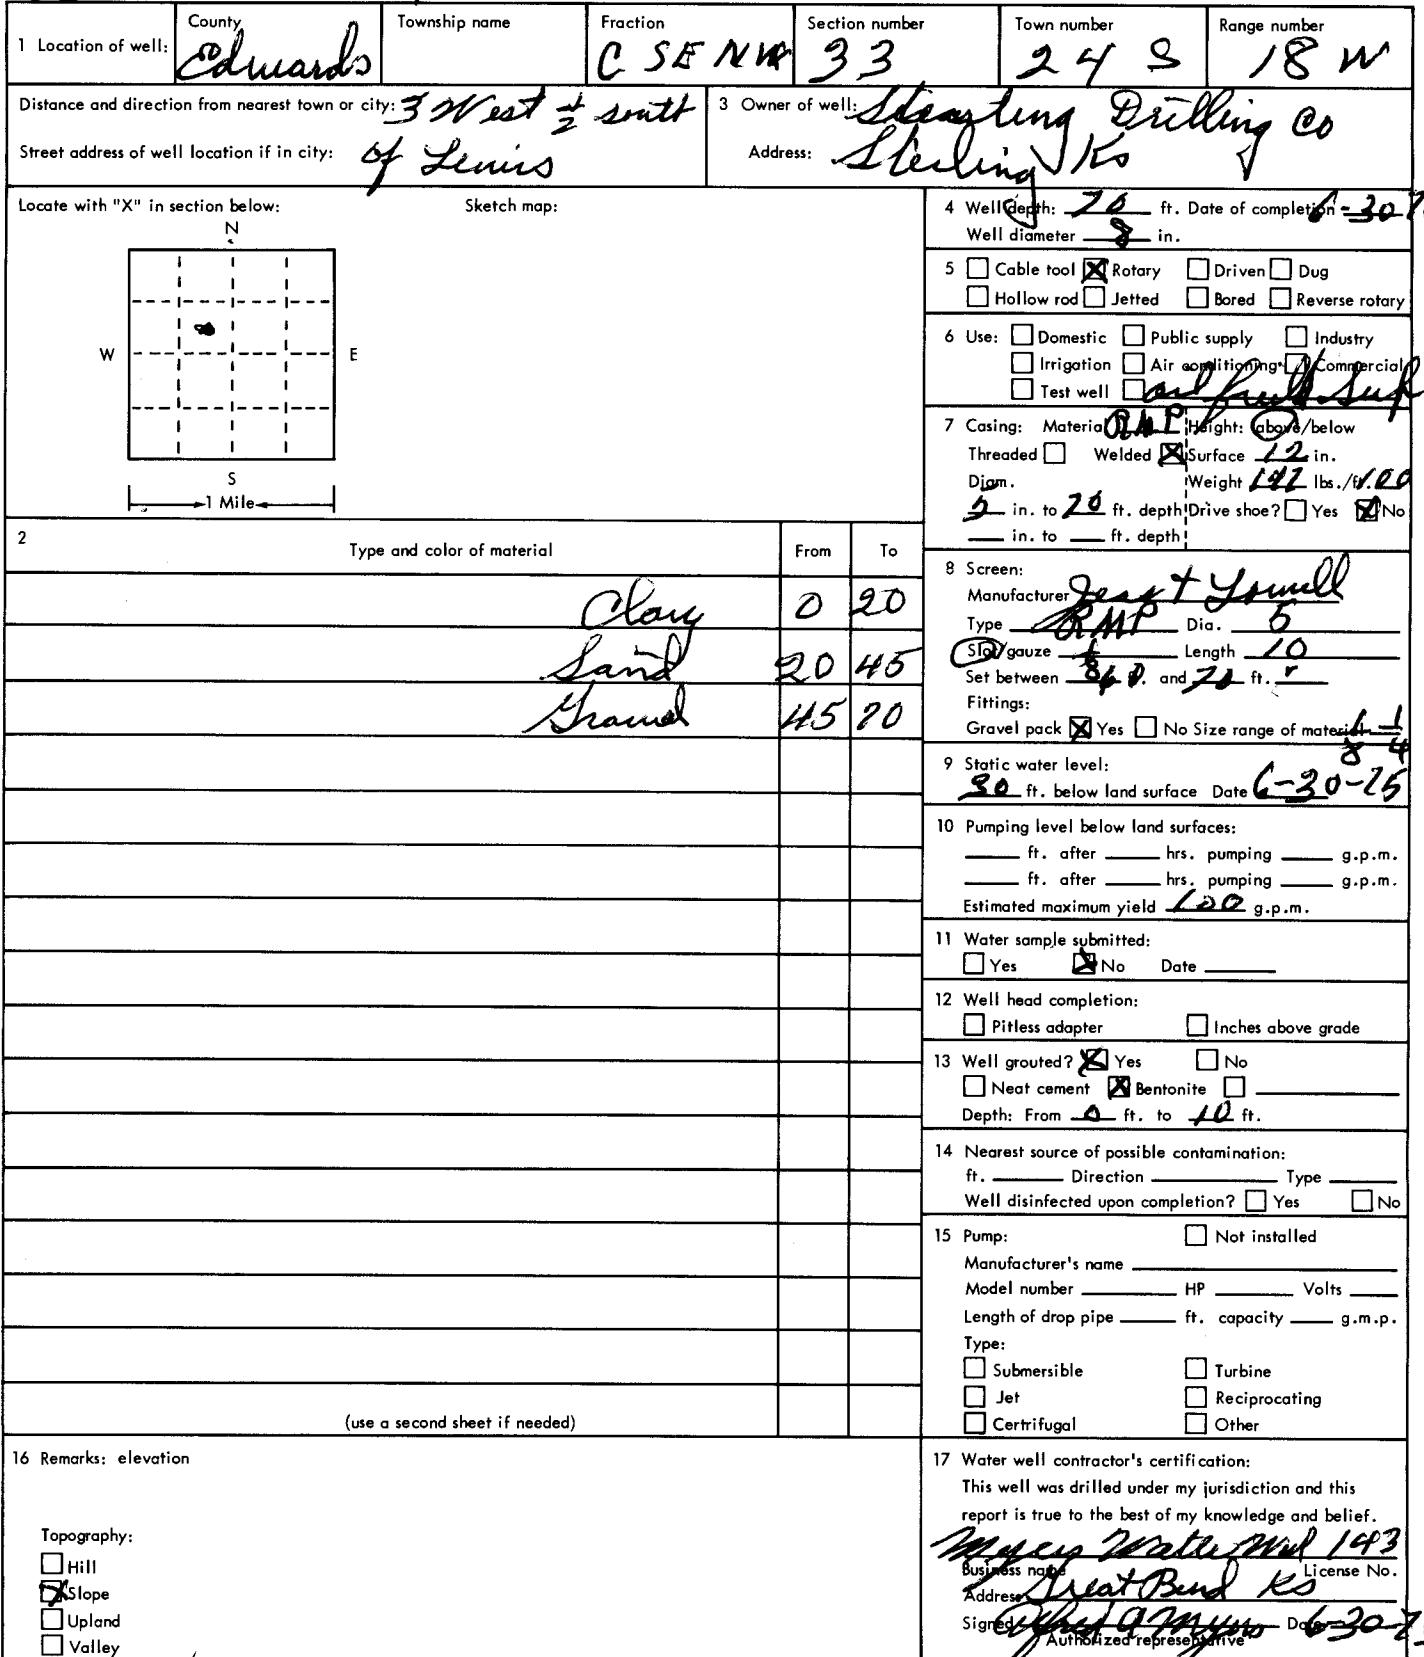 1 Location of well:
County
Edwards
Township name
Fraction
C SE NW
Section number
33
Town number
24 S
Range number
18 W
Distance and direction from nearest town or city: 3 West 1/2 south
Street address of well location if in city: of Lewis
3 Owner of well: Drilling Co
Address: Sterling Ks
Locate with "X" in section below:
Sketch map:
N
W
E
S
1 Mile
4 Well depth: 70 ft. Date of completion 6-30-7
Well diameter 8 in.
5 Cable tool X Rotary Driven Dug
Hollow rod Jetted Bored Reverse rotary
6 Use: Domestic Public supply Industry
Irrigation Air conditioning Commercial
Test well oil field Sup
7 Casing: Material RMP Height: above/below
Threaded Welded X Surface 12 in.
Diam. Weight lbs./ft.
5 in. to 70 ft. depth Drive shoe? Yes X No
in. to ft. depth
2
Type and color of material
From
To
Clay 0 20
Sand 20 45
Gravel 45 70
(use a second sheet if needed)
8 Screen:
Manufacturer Jess + Lowell
Type RMP Dia. 5
Slot/gauze 1/8 Length 10
Set between 60 and 70 ft.
Fittings:
Gravel pack X Yes No Size range of material 1/8 - 1/4
9 Static water level:
30 ft. below land surface Date 6-30-75
10 Pumping level below land surfaces:
ft. after hrs. pumping g.p.m.
ft. after hrs. pumping g.p.m.
Estimated maximum yield 100 g.p.m.
11 Water sample submitted:
Yes X No Date
12 Well head completion:
Pitless adapter Inches above grade
13 Well grouted? X Yes No
Neat cement X Bentonite
Depth: From 0 ft. to 10 ft.
14 Nearest source of possible contamination:
ft. Direction Type
Well disinfected upon completion? Yes No
15 Pump: Not installed
Manufacturer's name
Model number HP Volts
Length of drop pipe ft. capacity g.m.p.
Type:
Submersible Turbine
Jet Reciprocating
Certrifugal Other
16 Remarks: elevation
Topography:
Hill
X Slope
Upland
Valley
17 Water well contractor's certification:
This well was drilled under my jurisdiction and this
report is true to the best of my knowledge and belief.
Myers Water Well 143
Business name License No.
Address Great Bend Ks
Signed Alfred A Myers Date 6-30-7
Authorized representative